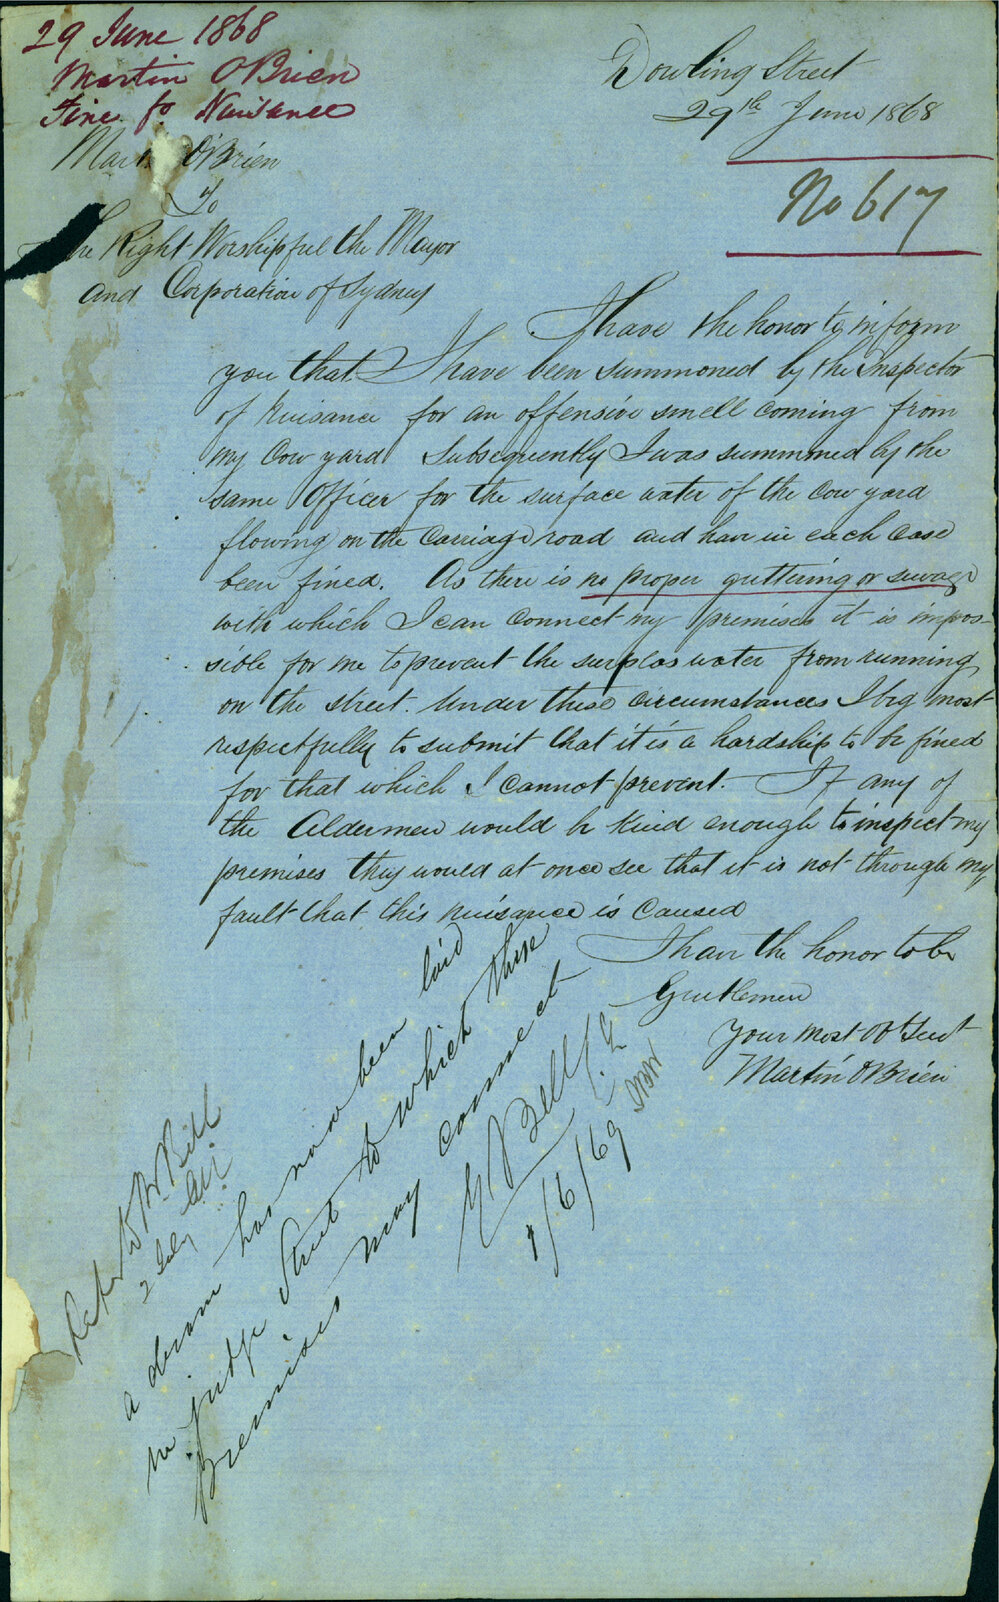 29 June 1868
Martin O'Brien
Fine for Nuisance
Dowling Street
29th June 1868
No 617
O'Brien
To
Right Worshipful the Mayor
and Corporation of Sydney
I have the honor to inform
you that I have been summoned by the Inspector
of Nuisance for an offensive smell coming from
my Cow yard Subsequently I was summned by the
same Officer for the surface water of the Cow yard
flowing on the Carriage road and have in each case
been fined. As there is no proper guttering or sewage
with which I can connect my premises it is impos-
sible for me to prevent the surplas water from running
on the street. Under these circumstances I beg most
respectfully to submit that it is a hardship to be fined
for that which I cannot prevent. If any of
the Aldermen would be kind enough to inspect my
premises they would at once see that it is not through my
fault that this nuisance is caused
I have the honor to be
Gentlemen
Your most Obt Servt
Martin O'Brien
Mr Bell
2 July
a drain has now been laid
in judge Street to which these
Premises may connect
Bell C.E.
1/6/69